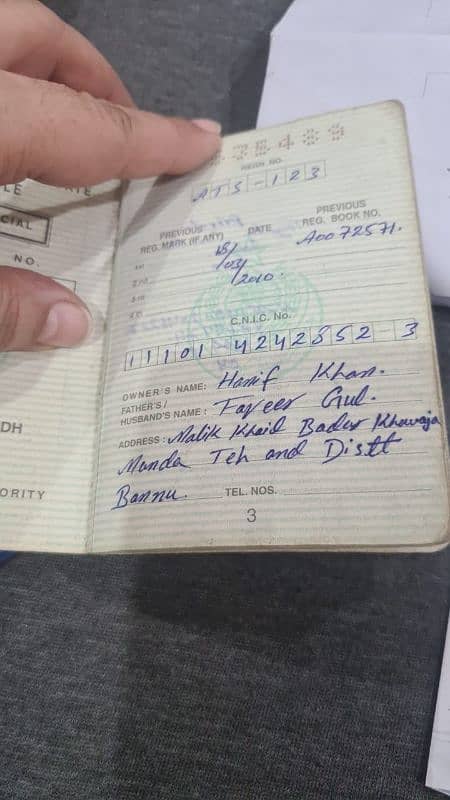 REGN. NO.
ATS-123
PREVIOUS
REG. MARK (IF ANY)
DATE
PREVIOUS
REG. BOOK NO.
A0072571.
18/
/03/
/2010.
1st
2nd
3rd
C.N.I.C. No.
11101-4242852-3
OWNER'S NAME: Hanif Khan.
FATHER'S /
HUSBAND'S NAME: Faqeer Gul.
ADDRESS: Malik Khail Bader Khawaja
Manda Teh and Distt
Bannu.
TEL. NOS.
3
CIAL
NO.
DH
ORITY